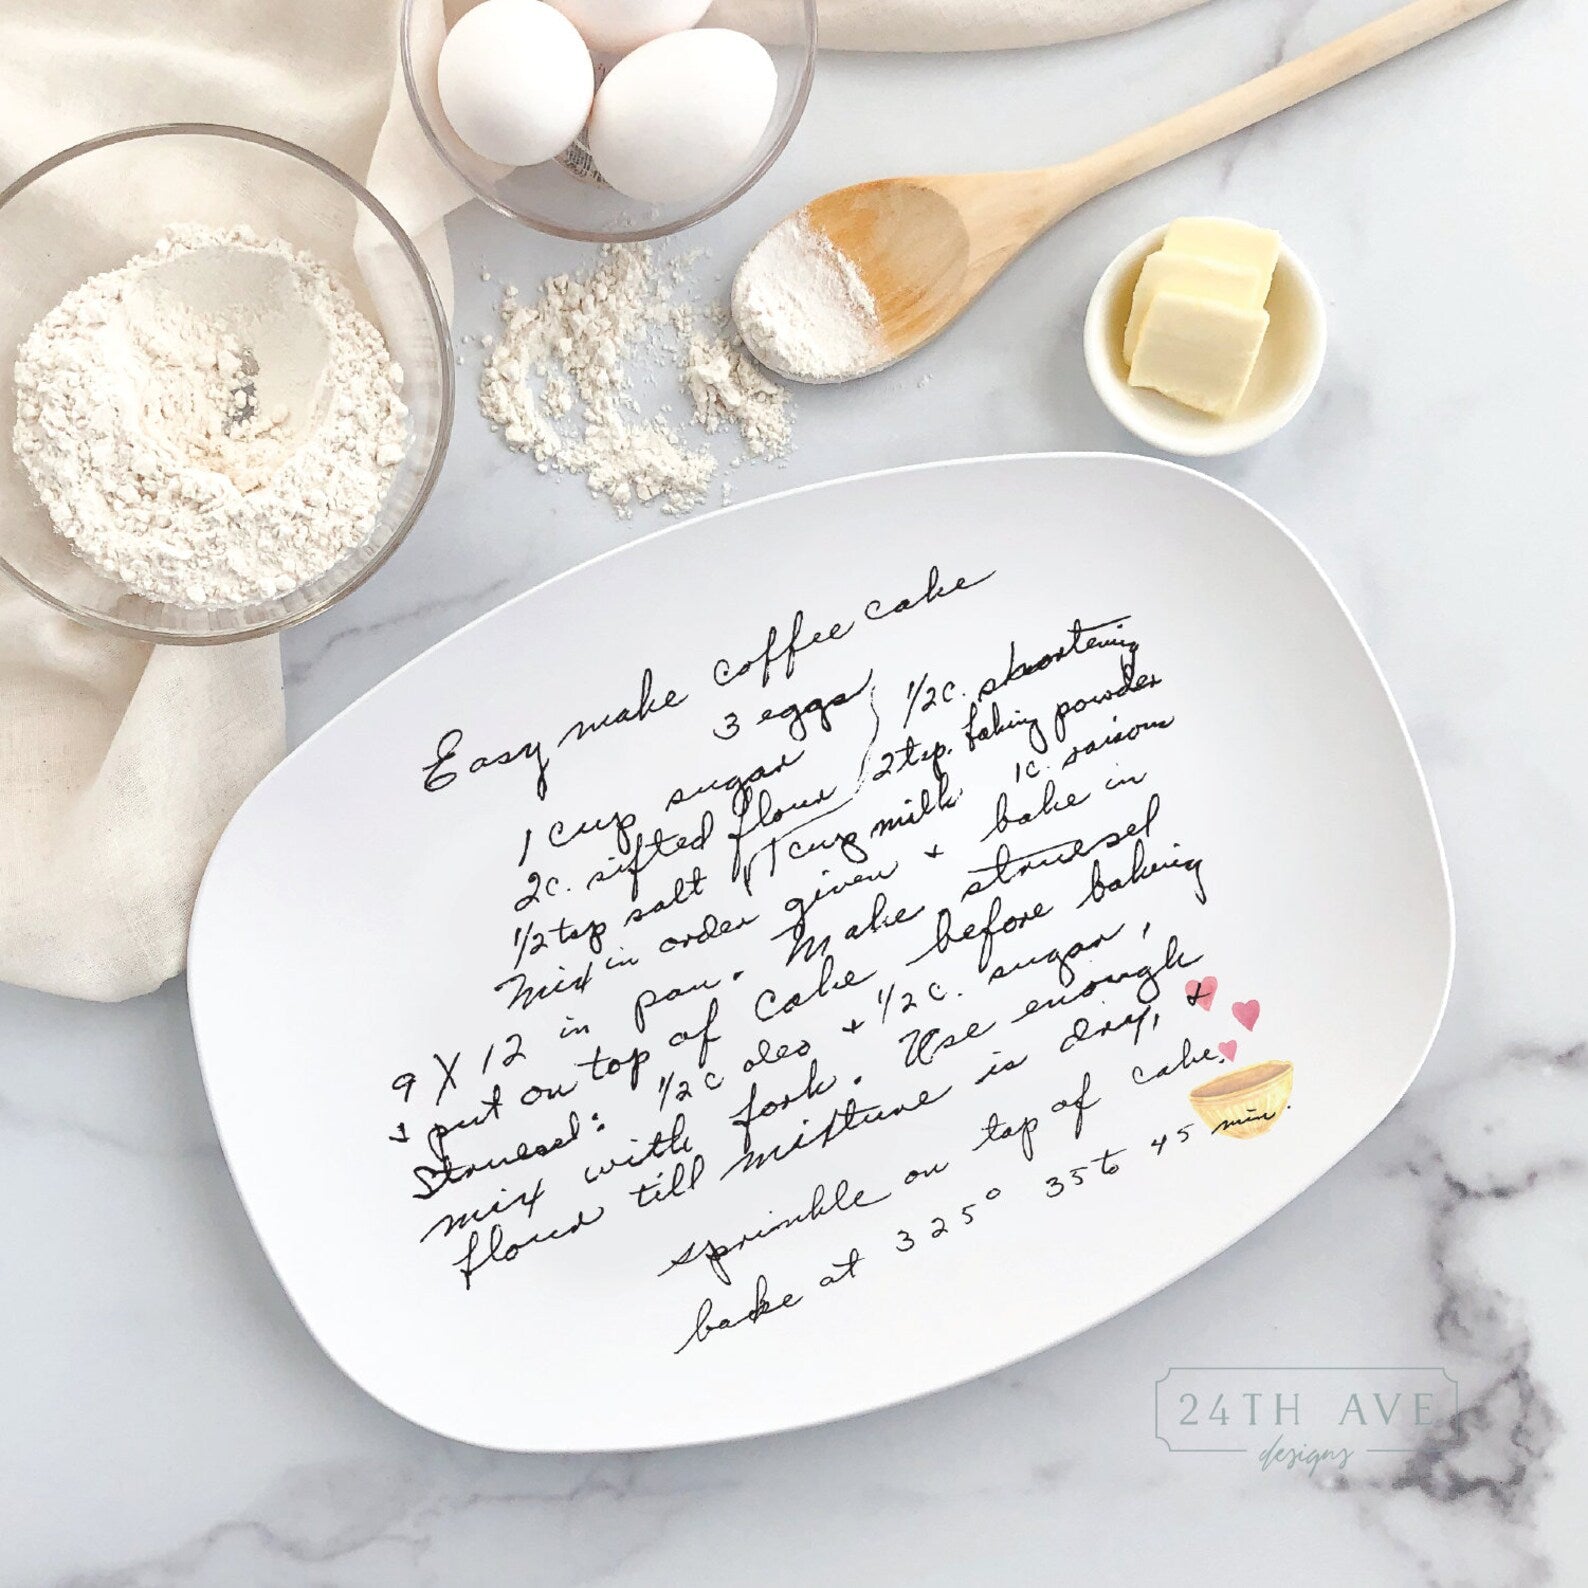 Easy make coffee cake
3 eggs 1/2 c. shortening
1 cup sugar 2 tsp. baking powder
2c. sifted flour
1/2 tsp salt 1 cup milk 1c. raisons
Mix in order given + bake in
9 X 12 in pan. Make struesel
+ put on top of cake before baking
Struesel: 1/2 c oleo + 1/2 c. sugar,
mix with fork. Use enough
flour till mixture is dry, +
sprinkle on top of cake.
bake at 325° 35 to 45 min.
24TH AVE
designs